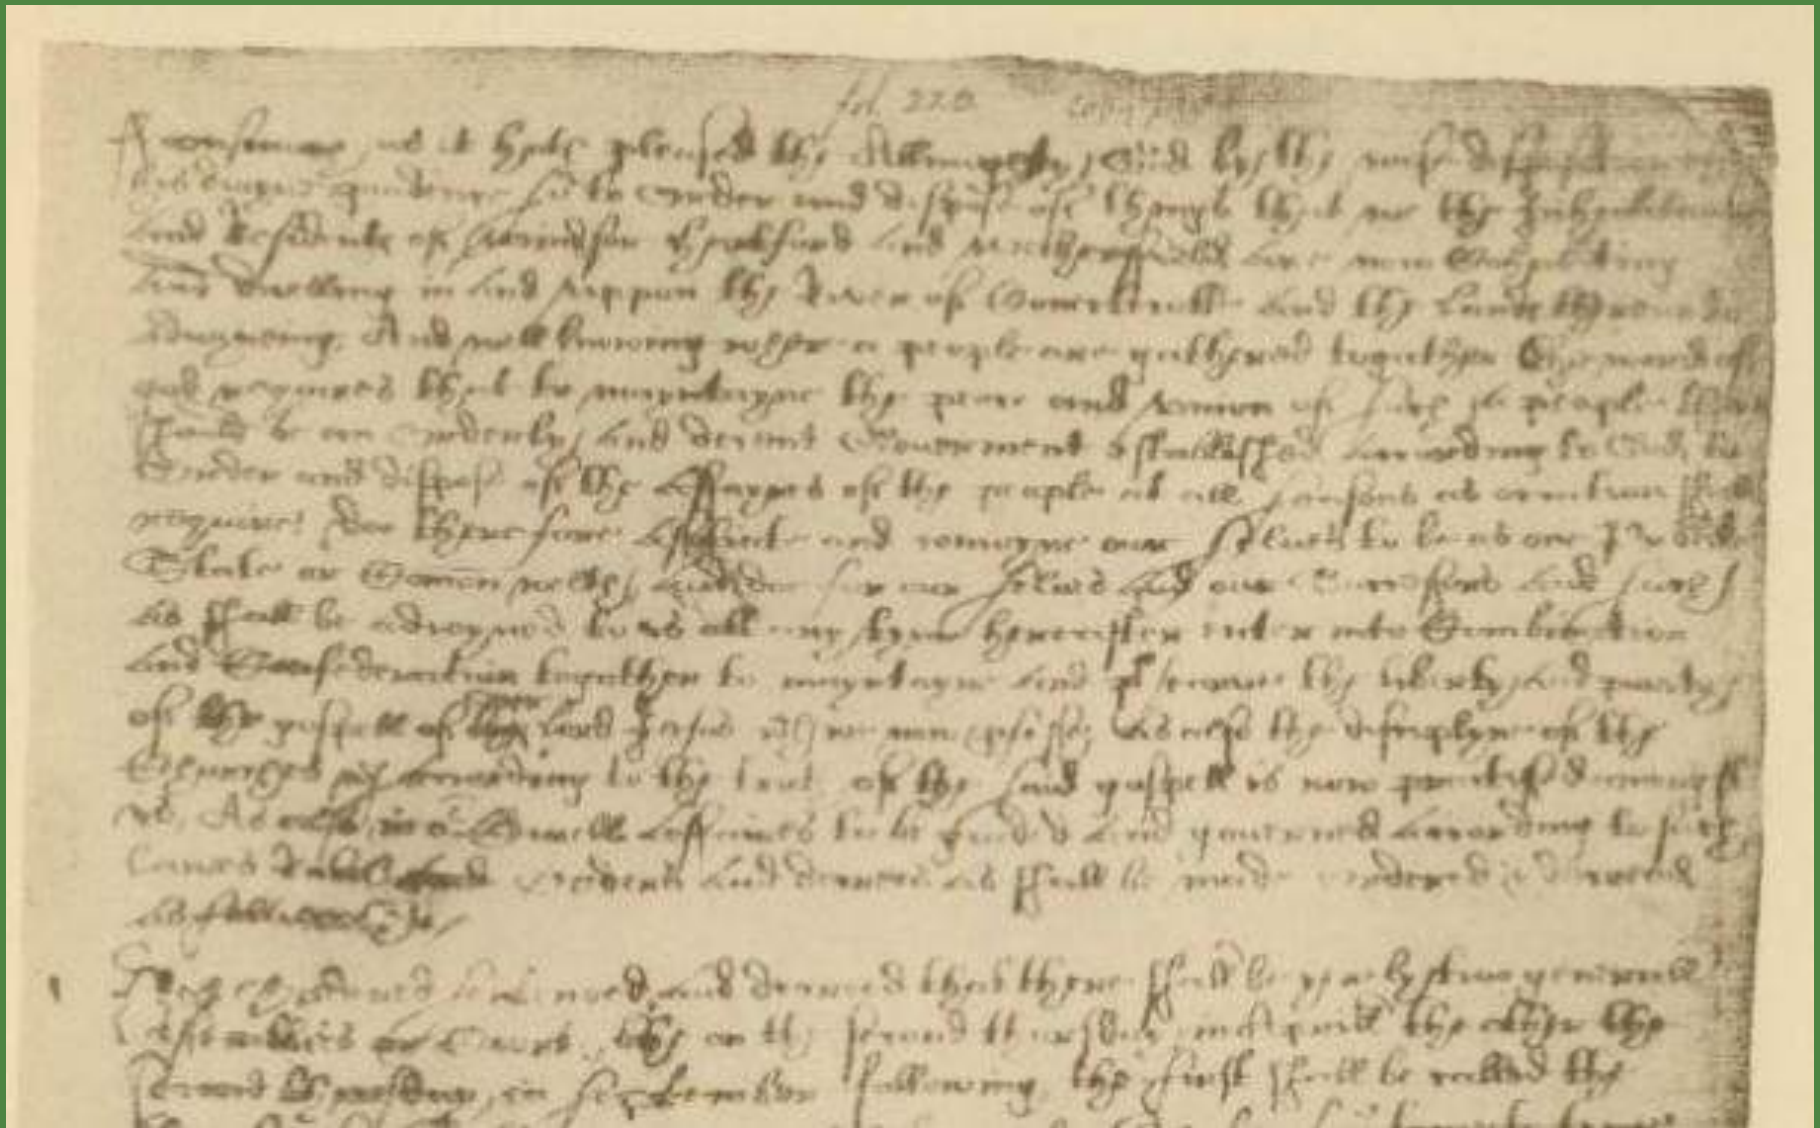 fol. 220
Forasmuch as it hath pleased the Allmighty God by the wise disposition
his diuyne pruidence so to Order and dispose of things that we the Inhabitants
and Residents of Windsor Harteford and Wethersfield are now Cohabiting
and dwelling in and vppon the River of Conectecotte and the Lands thereunto
adioyneing, And well knowing where a people are gathered togather the word of
god requires that to mayntayne the peace and vnion of such a people there
should be an Orderly and decent Gouerment established according to God, to
Order and dispose of the Affayres of the people at all seasons as occation shall
require; doe therefore assotiate and conioyne our selues to be as one Publike
State or Comonwelth, and doe for our selues and our Successors and such
as shall be adioyned to vs att any tyme hereafter enter into Combination
and Confederation togather to mayntayne and prsearue the liberty and purity
of the gospell of our Lord Jesus wch we now prfesse, As also the disciplyne of the
Churches wch according to the truth of the said gospell is now practised amongst
vs, As also in or Ciuell Affaires to be guided and gouerned according to such
Lawes Rules Orders and decrees as shall be made ordered & decreed
as followeth
1 It is Ordered sentenced and decreed that there shall be yerely two generall
Assemblies or Courts, the on the second thursday in Aprill the other the
second thursday in September following, the first shall be called the